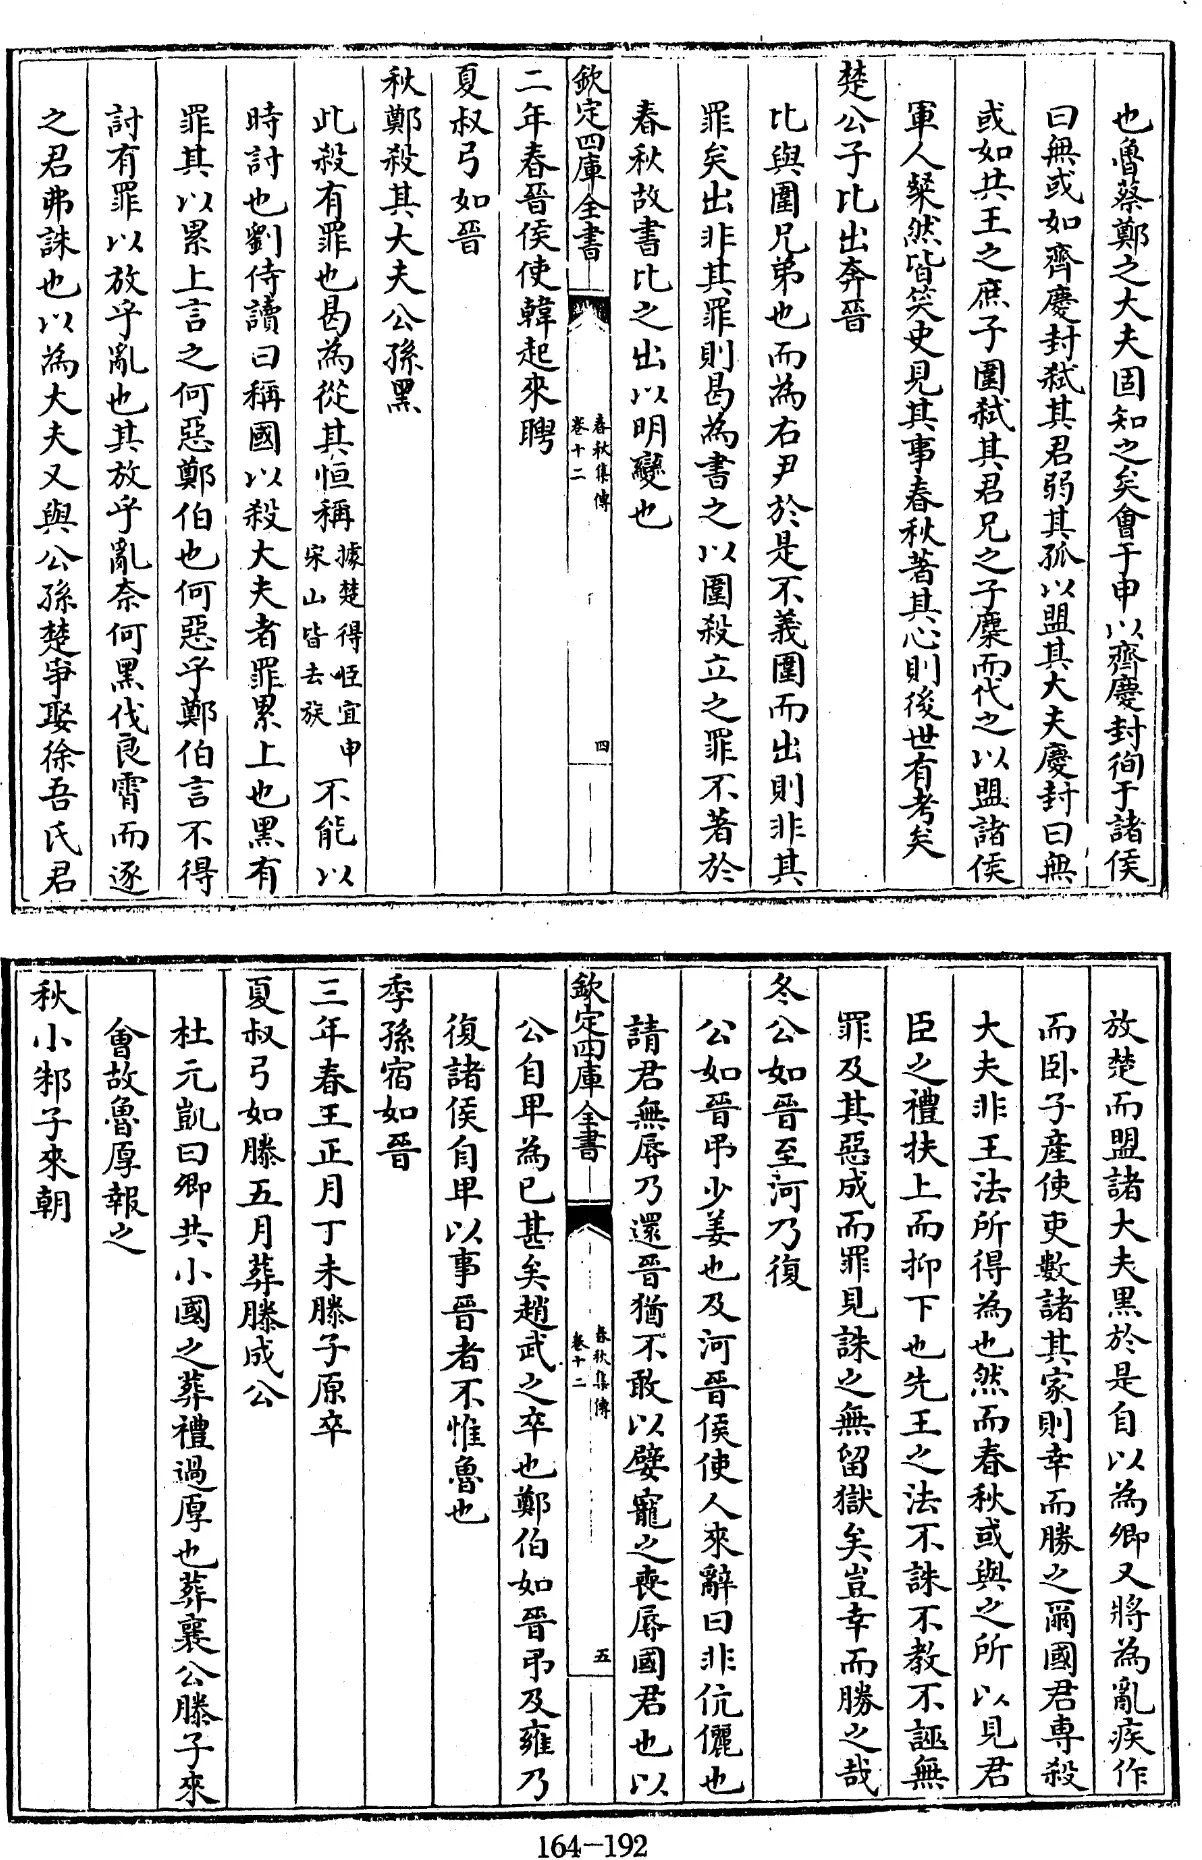 也魯蔡鄭之大夫固知之矣會于申以齊慶封徇于諸侯
曰無或如齊慶封弒其君弱其孤以盟其大夫慶封曰無
或如共王之庶子圍弒其君兄之子麇而代之以盟諸侯
軍人粲然皆笑史見其事春秋著其心則後世有考矣
楚公子比出奔晉
比與圍兄弟也而為右尹於是不義圍而出則非其
罪矣出非其罪則曷為書之以圍殺立之罪不著於
春秋故書比之出以明變也
欽定四庫全書
春秋集傳
卷十二
四
二年春晉侯使韓起來聘
夏叔弓如晉
秋鄭殺其大夫公孫黑
此殺有罪也曷為從其恒稱據楚得臣宜申宋山皆去族不能以
時討也劉侍讀曰稱國以殺大夫者罪累上也黑有
罪其以累上言之何惡鄭伯也何惡乎鄭伯言不得
討有罪以放乎亂也其放乎亂奈何黑伐良霄而逐
之君弗誅也以為大夫又與公孫楚爭娶徐吾氏君
放楚而盟諸大夫黑於是自以為卿又將為亂疾作
而卧子產使吏數諸其家則幸而勝之爾國君專殺
大夫非王法所得為也然而春秋或與之所以見君
臣之禮扶上而抑下也先王之法不誅不教不誣無
罪及其惡成而罪見誅之無留獄矣豈幸而勝之哉
冬公如晉至河乃復
公如晉弔少姜也及河晉侯使人來辭曰非伉儷也
請君無辱乃還晉猶不敢以嬖寵之喪辱國君也以
欽定四庫全書
春秋集傳
卷十二
五
公自卑為已甚矣趙武之卒也鄭伯如晉弔及雍乃
復諸侯自卑以事晉者不惟魯也
季孫宿如晉
三年春王正月丁未滕子原卒
夏叔弓如滕五月葬滕成公
杜元凱曰卿共小國之葬禮過厚也葬襄公滕子來
會故魯厚報之
秋小邾子來朝
164-192